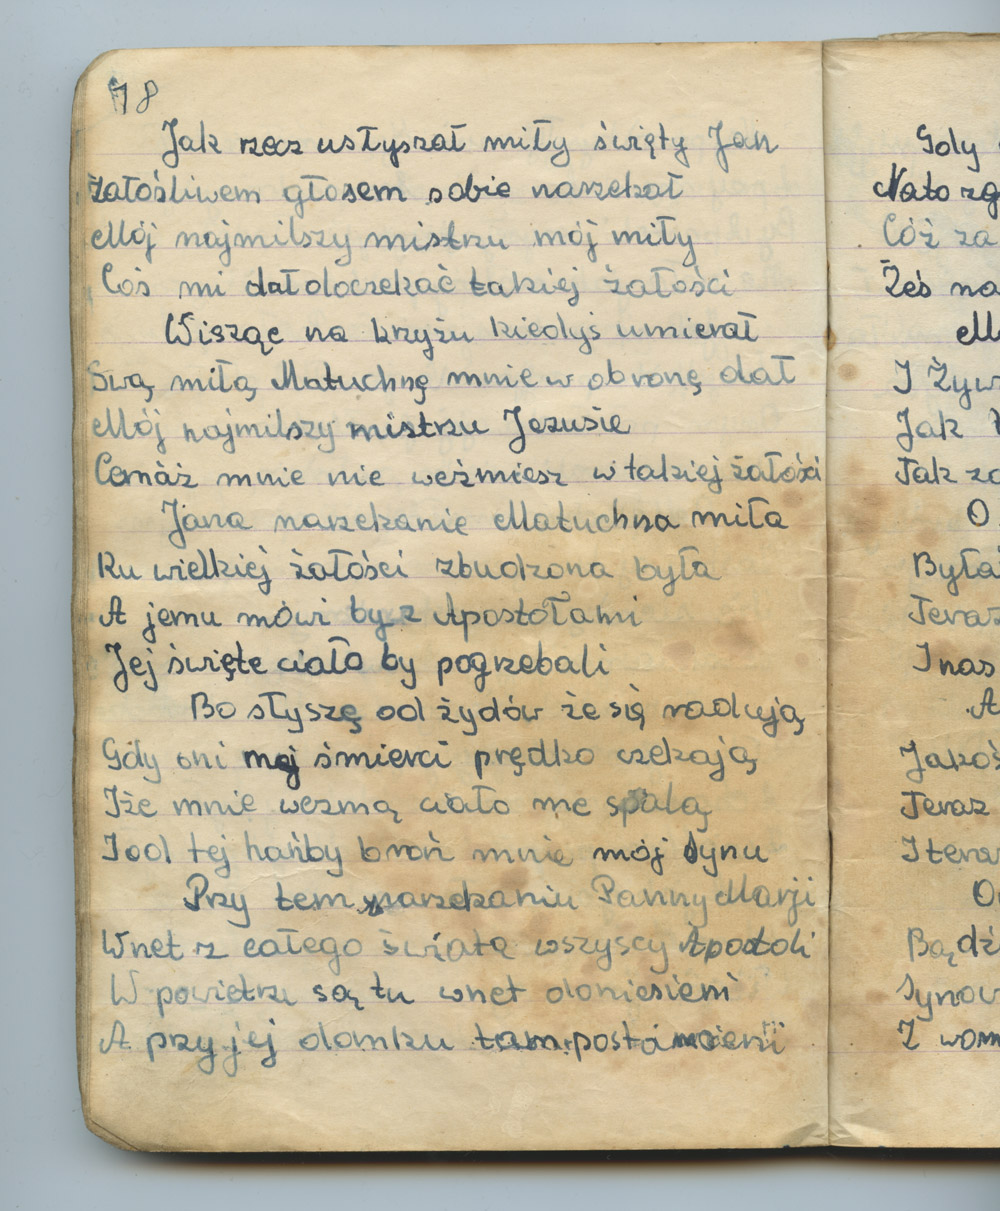 78
Jak rzecz usłyszał miły święty Jan
Żałośliwem głosem sobie narzekał
Mój najmilszy mistrzu mój miły
Coś mi dał doczekać takiej żałości
Wisząc na krzyżu kiedyś umierał
Swą miłą Matuchnę mnie w obronę dał
Mój najmilszy mistrzu Jezusie
Czemóż mnie nie weźmiesz w takiej żałości
Jana narzekanie Matuchna miła
Ku wielkiej żałości zbudzona była
A jemu mówi by z Apostołami
Jej święte ciało by pogrzebali
Bo słyszę od żydów że się radują
Gdy oni mej śmierci prędko czekają
Iże mnie wezmą ciało me spalą
I od tej hańby broń mnie mój Synu
Przy tem narzekaniu Panny Marji
Wnet z całego świata wszyscy Apostoli
W powietrzu są tu wnet doniesieni
A przy jej domku tam postawieni
Gdy
Nato zg
Cóż za
Żeś na
M
I Żyw
Jak
Jak za
O
Była
Teraz
I nas
A
Jakoś
Teraz
I teraz
O
Bądź
Synow
Z wom